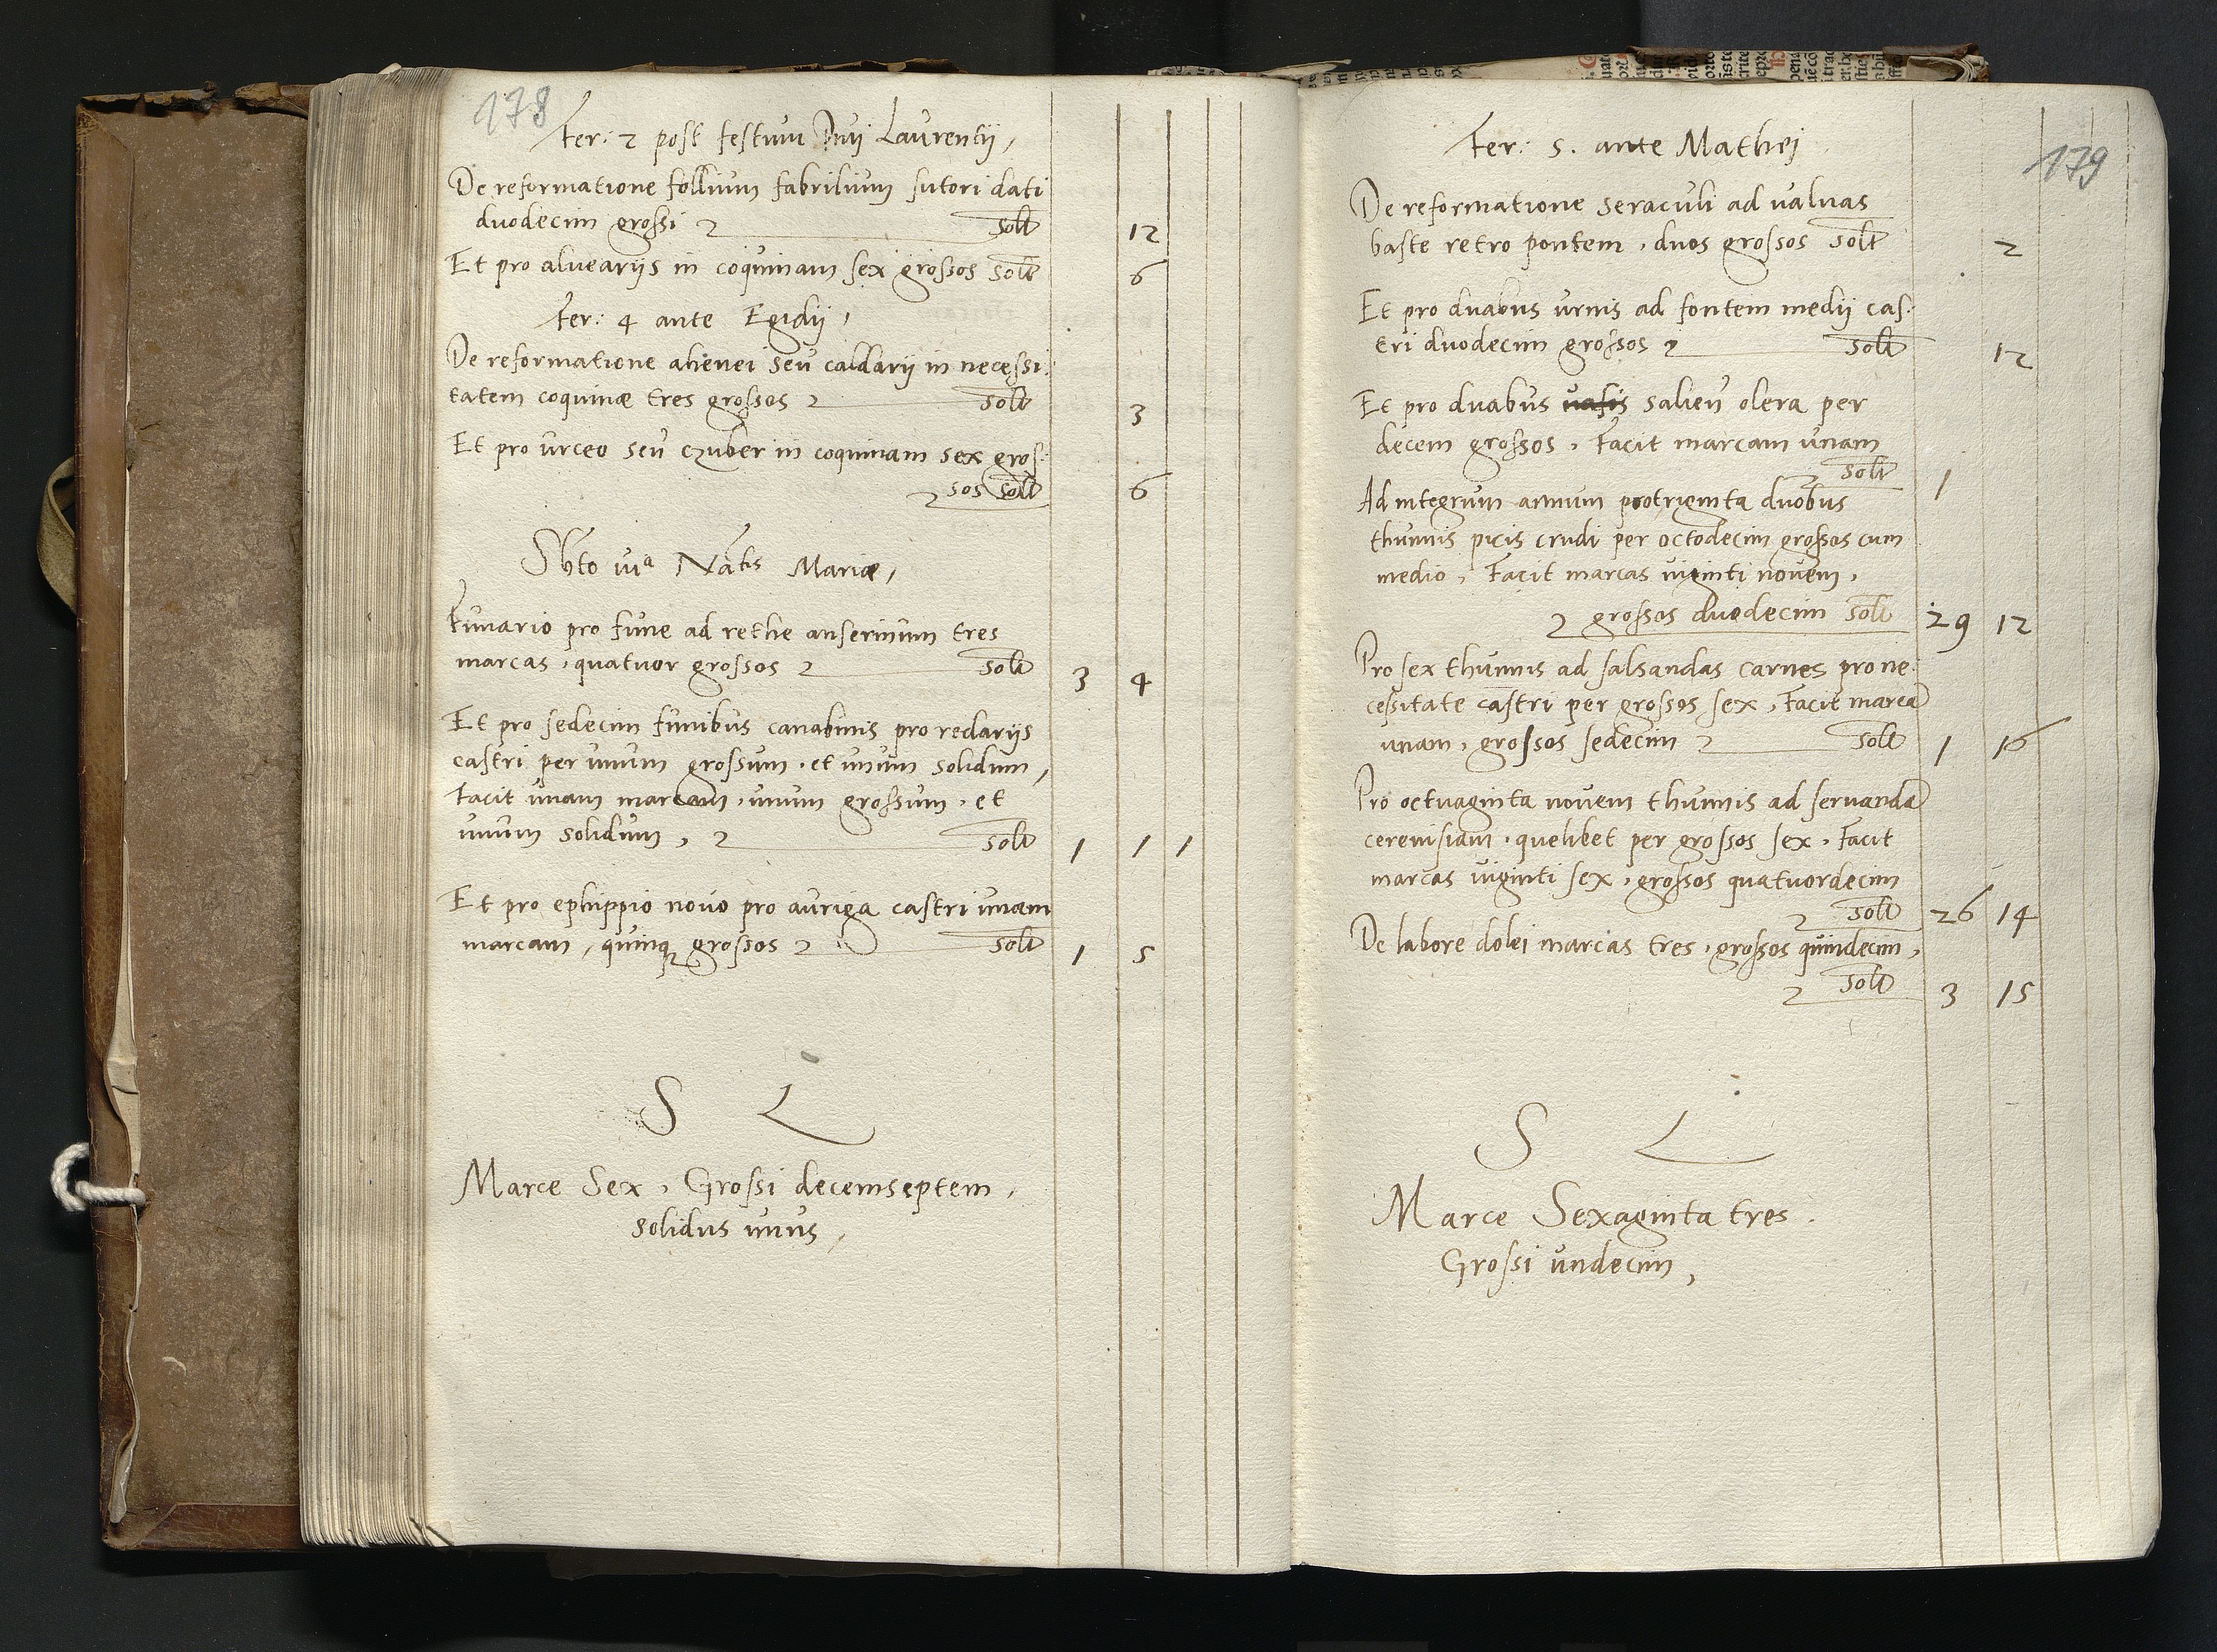 178
Fer: 2 post festum Divi Laurentij,
De reformatione follium fabrilium sutori dati
duodecim grossi solt 12
Et pro alueariis in coquinam sex grossos solt 6
Fer: 4 ante Egidij,
De reformatione ahenei seu caldarij in necessi:
tatem coquinæ tres grossos solt 3
Et pro urceo seu czuber in coquinam sex gros:
sos solt 6
Sbto Natis Mariæ,
Funario pro fune ad rethe anserinum tres
marcas, quatuor grossos solt 3 4
Et pro sedecim funibus canabinis pro redariis
castri per unum grossum, et unum solidum,
Facit unam marcam, unum grossum, et
unum solidum, solt 1 1 1
Et pro ephippio novo pro auriga castri unam
marcam, quinq grossos solt 1 5
S L
Marce Sex, Grossi decemseptem,
solidus unus,
179
Fer: 5. ante Mathei
De reformatione seraculi ad valvas
baste retro pontem, duos grossos solt 2
Et pro duabus urnis ad fontem medij cas:
tri duodecim grossos solt 12
Et pro duabus vasis salien olera per
decem grossos, Facit marcam unam
solt 1
Ad integrum annum pro triginta duobus
thunnis picis crudi per octodecim grossos cum
medio, Facit marcas viginti novem,
grossos duodecim solt 29 12
Pro sex thunnis ad salsandas carnes pro ne:
cessitate castri per grossos sex, Facit marca
unam, grossos sedecim solt 1 16
Pro octuaginta novem thunnis ad servanda
cerevisiam, quelibet per grossos sex, Facit
marcas viginti sex, grossos quatuordecim
solt 26 14
De labore dolei marcas tres, grossos quindecim,
solt 3 15
S L
Marce Sexaginta tres.
Grossi undecim,